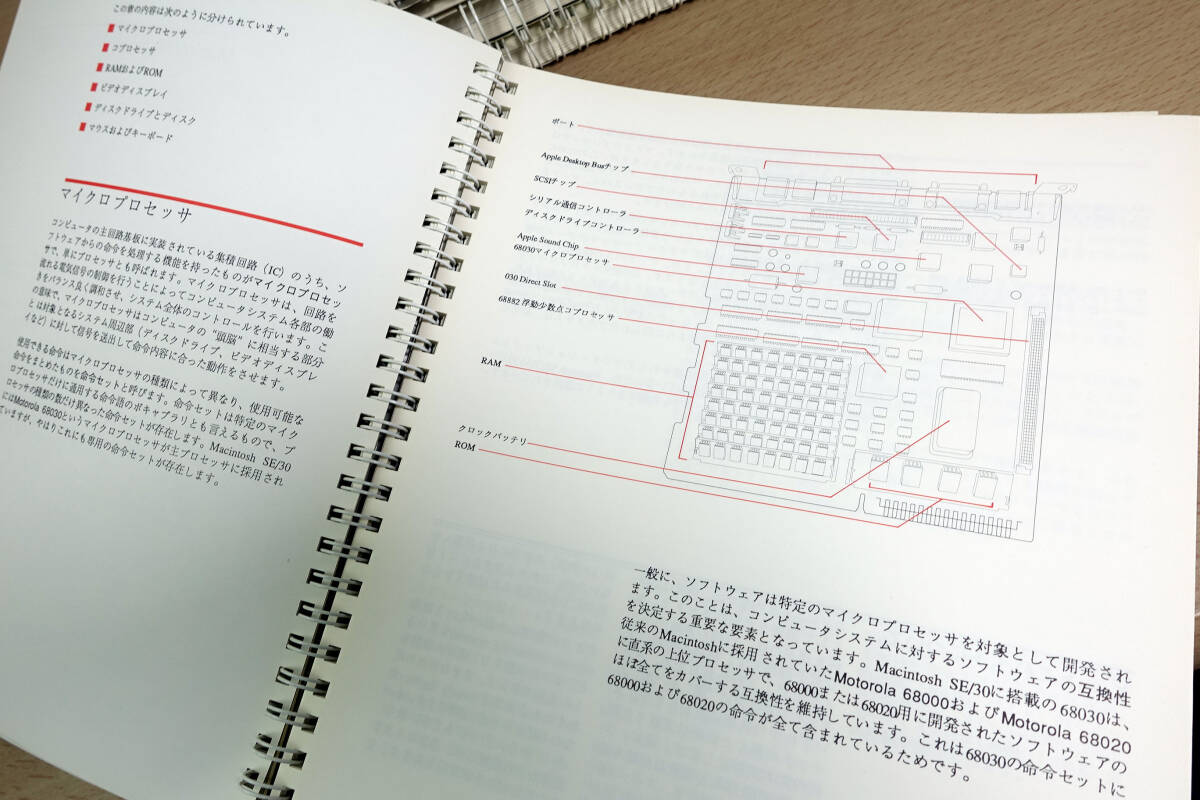 この章の内容は次のように分けられています。
マイクロプロセッサ
コプロセッサ
RAMおよびROM
ビデオディスプレイ
ディスクドライブとディスク
マウスおよびキーボード
マイクロプロセッサ
コンピュータの主回路基板に実装されている集積回路（IC）のうち、ソ
フトウェアからの命令を処理する機能を持ったものがマイクロプロセッ
サで、単にプロセッサとも呼ばれます。マイクロプロセッサは、回路を
流れる電気信号の制御を行うことによってコンピュータシステム各部の働
きをバランス良く調和させ、システム全体のコントロールを行います。こ
の意味で、マイクロプロセッサはコンピュータの“頭脳”に相当する部分
とは対象となるシステム周辺部（ディスクドライブ、ビデオディスプレ
イなど）に対して信号を送出して命令内容に合った動作をさせます。
使用できる命令はマイクロプロセッサの種類によって異なり、使用可能な
命令をまとめたものを命令セットと呼びます。命令セットは特定のマイク
ロプロセッサだけに通用する命令語のボキャブラリとも言えるもので、プ
ロセッサの種類の数だけ異なった命令セットが存在します。Macintosh SE/30
にはMotorola 68030というマイクロプロセッサが主プロセッサに採用され
ていますが、やはりこれにも専用の命令セットが存在します。
ポート
Apple Desktop Busチップ
SCSIチップ
シリアル通信コントローラ
ディスクドライブコントローラ
Apple Sound Chip
68030マイクロプロセッサ
030 Direct Slot
68882 浮動少数点コプロセッサ
RAM
クロックバッテリ
ROM
一般に、ソフトウェアは特定のマイクロプロセッサを対象として開発され
ます。このことは、コンピュータシステムに対するソフトウェアの互換性
を決定する重要な要素となっています。Macintosh SE/30に搭載の68030は、
従来のMacintoshに採用されていたMotorola 68000およびMotorola 68020
に直系の上位プロセッサで、68000または68020用に開発されたソフトウェアの
ほぼ全てをカバーする互換性を維持しています。これは68030の命令セットに
68000および68020の命令が全て含まれているためです。